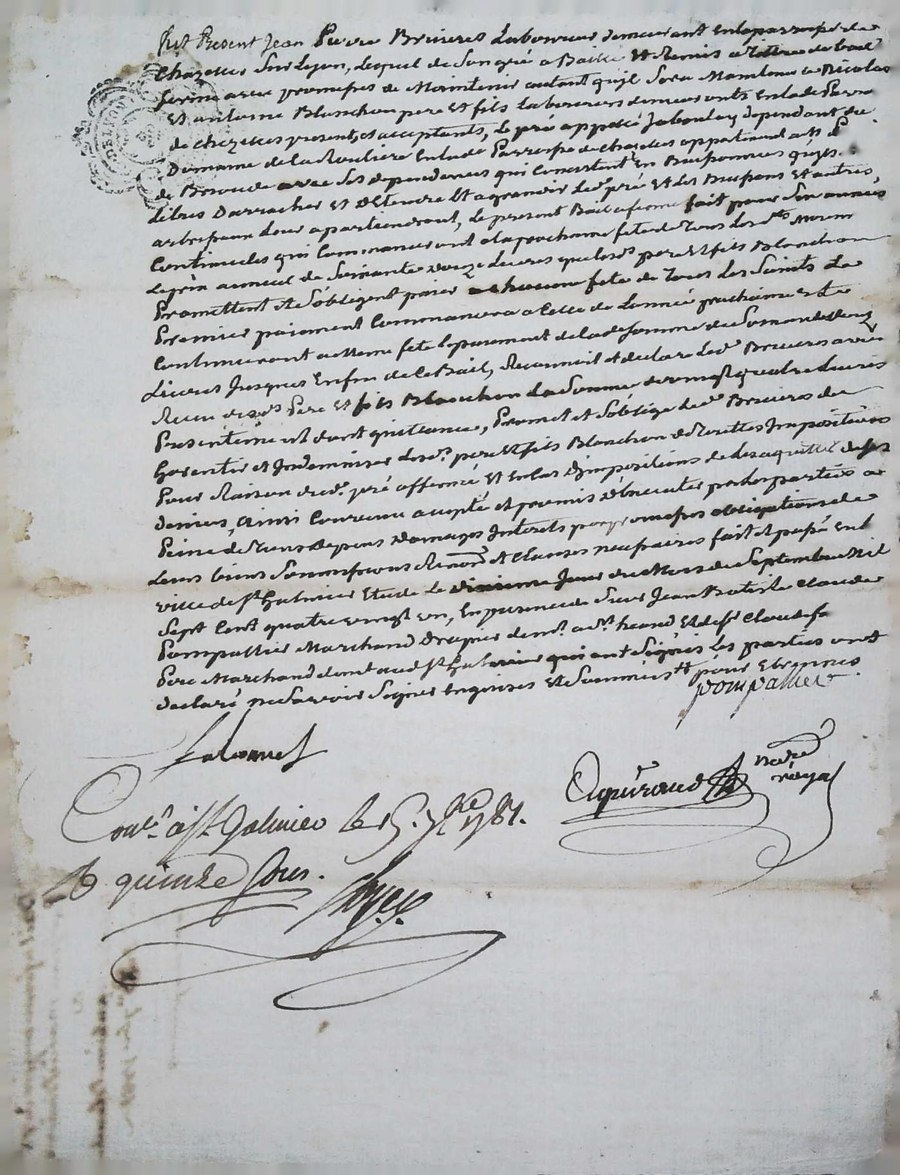 fut Present Jean Pierre Bruieres Laboureur demeurant en la parroisse de
Chazelles sur Lyon, Lequel de son gré a Baillé et Remis a tittre de bail
ferme avec promesses de Maintenir autant quil sera Necess. a Nicolas
Et antoine Blanchon pere et fils Laboureurs demeurants En lad. Parr.
de chazelles presents, et acceptants, Le pré appellé Jaboulay dependant du
Domaine de la Rouliere En lad. Parroisse de chazelles appartenant a Mr
de Brioude avec ses dependances qui Consistent En Buissonnées
Libres Darracher et D'Etendre Et agrandir Led. pré Et les Buissons Et autres
arbres Leur apartiendront, Le present Bail a ferme fait pour Six années
Continuelles qui Commanceront a la prochaine fete de Tous les Sts Moyen
Le prix annuel de Soixante douze Livres que lesd. pere et fils Blanchon
Promettent et s'obligent paier a chacune fete de Tous Les Saints Le
Premier paiement Commancera a Celle de Lannée prochaine et
Continueront a meme fete le paiement de lad. Somme de Soixante douze
Livres Jusques En fin de ce Bail, Reconnoit et declare Led. Bruieres avoir
Receu desd. Pere et fils Blanchon La Somme de vingt quatre Livres
Presentement dont quittance, Promet et s'oblige led. Bruieres de
Garentir et Indemniser lesd. pere et fils Blanchon de Toutes Impositions
Pour Raison dud. pré affermé Et En Cas d'impositions de les acquitter de ses
deniers, ainsi Convenu accepté et promis d'Executer par les parties a
Peine de Tous depens Domages Interets par promesses obligations de
Leurs biens Soumissions Renon. et Clauses necessaires fait et passé En la
ville de St Galmier Etude Le dixieme Jour du Mois de Septembre Mil
Sept Cent quatre vingt un, En presence de Sieur Jean Batiste Claude
Pompallier Marchand Drapier et de Sr Claude
Pere Marchand aud. St Galmier qui ont Signés les parties ont
declaré ne Savoir Signer Enquises Et Sommées
pompallier
notre
royal
Con.lé à St Galmier le 15. 7bre 1781.
R quinze sous.